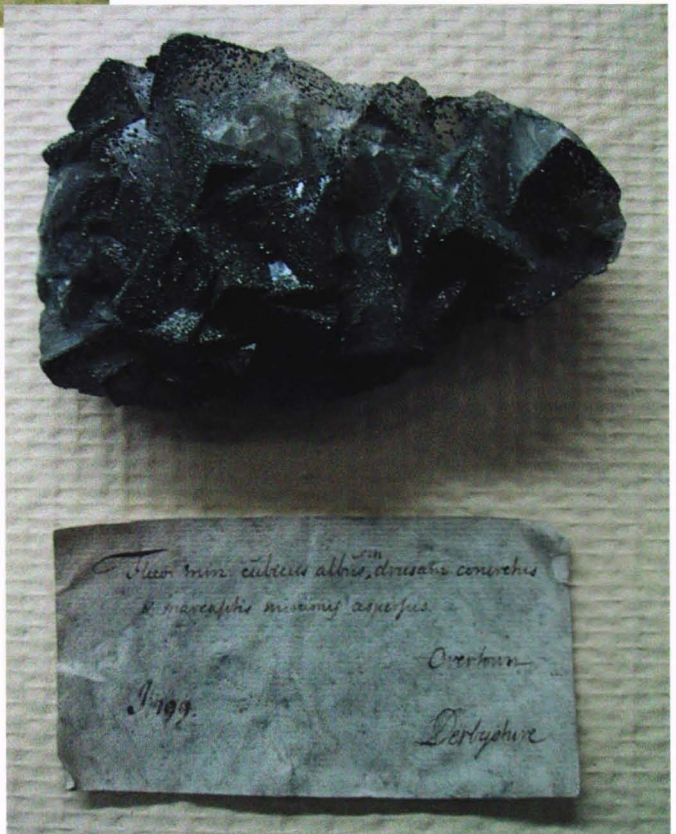 Fluor min cubicus albus, in drusam concretus
& marcasitis minimis aspersus
Overtown
N 199.
Derbyshire